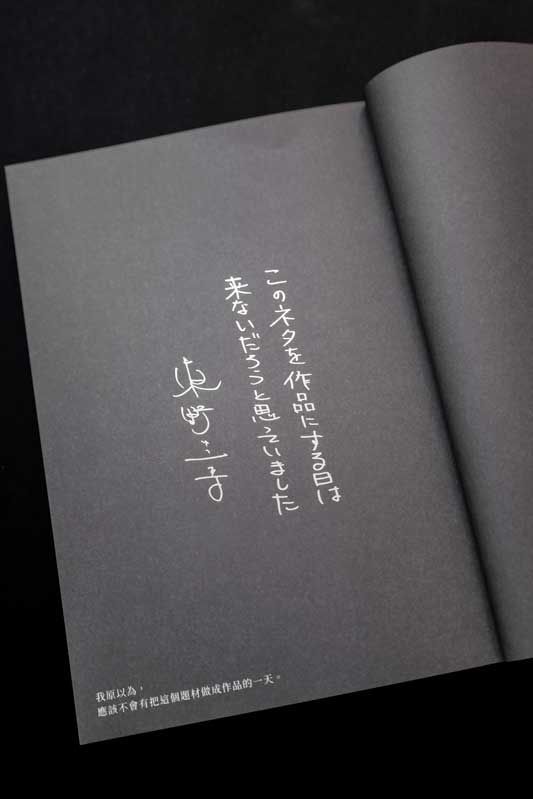 このネタを作品にする日は
来ないだろうと思っていました
東野圭吾
我原以為，
應該不會有把這個題材做成作品的一天。